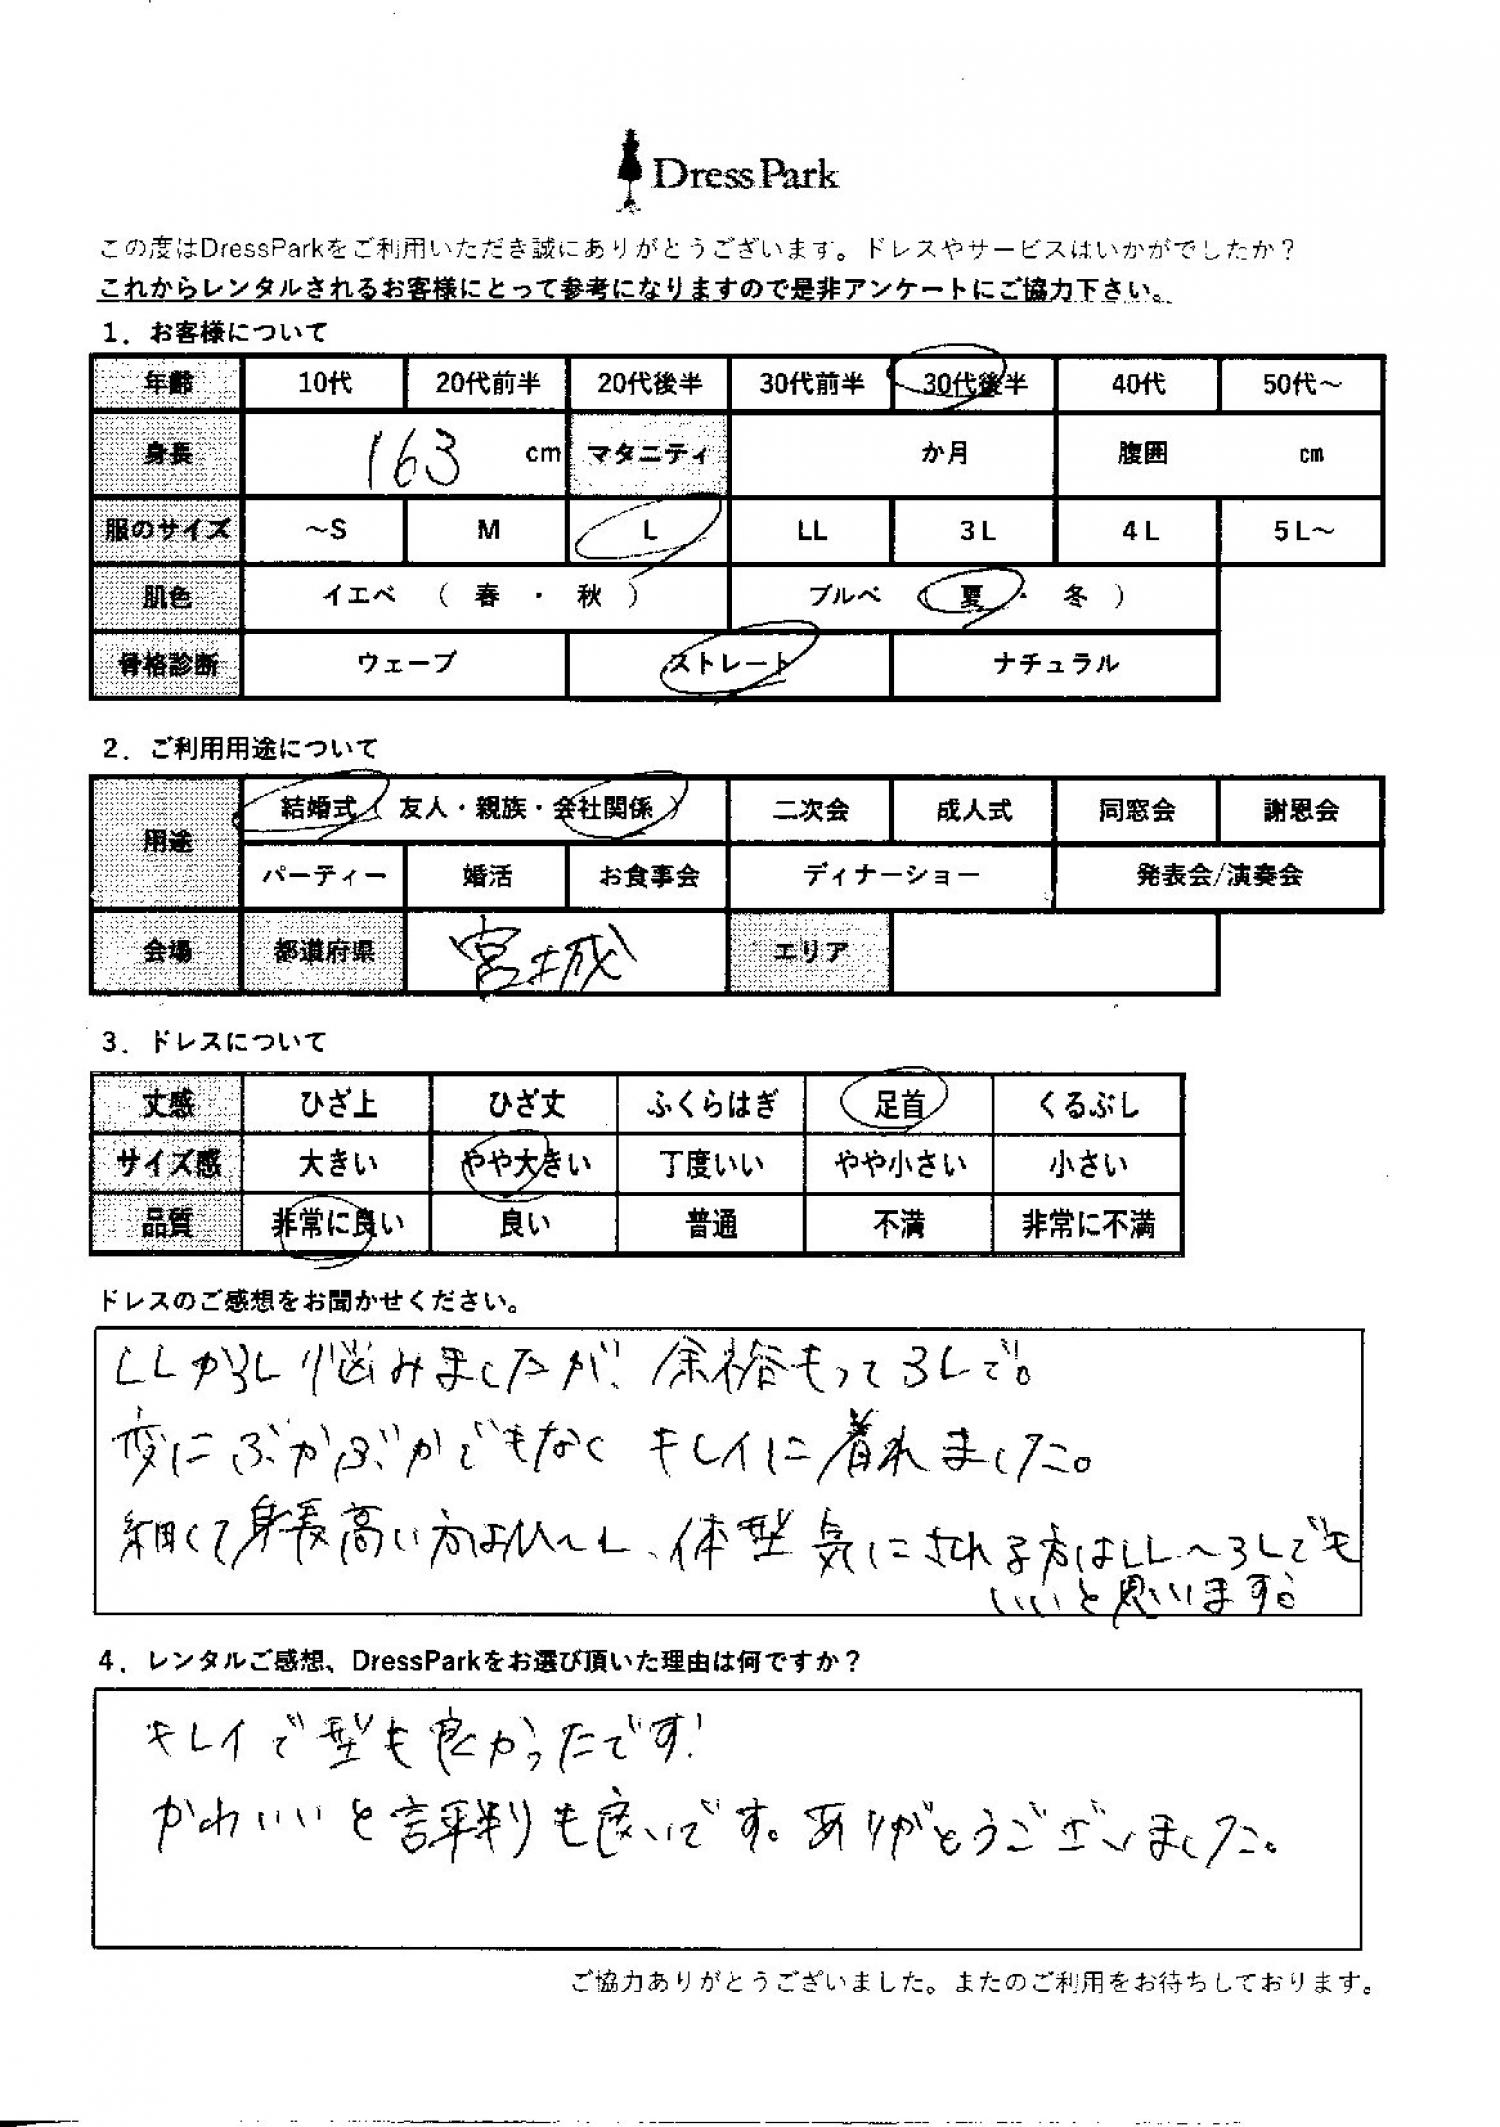 DressPark
この度はDressParkをご利用いただき誠にありがとうございます。ドレスやサービスはいかがでしたか？
これからレンタルされるお客様にとって参考になりますので是非アンケートにご協力下さい。
1．お客様について
年齢 10代 20代前半 20代後半 30代前半 30代後半 40代 50代～
身長 163 cm マタニティ か月 腹囲 cm
服のサイズ ～S M L LL 3L 4L 5L～
肌色 イエベ （ 春 ・ 秋 ） ブルベ （ 夏 ・ 冬 ）
骨格診断 ウェーブ ストレート ナチュラル
2．ご利用用途について
用途 結婚式（ 友人・親族・会社関係 ） 二次会 成人式 同窓会 謝恩会
パーティー 婚活 お食事会 ディナーショー 発表会/演奏会
会場 都道府県 宮城 エリア
3．ドレスについて
丈感 ひざ上 ひざ丈 ふくらはぎ 足首 くるぶし
サイズ感 大きい やや大きい 丁度いい やや小さい 小さい
品質 非常に良い 良い 普通 不満 非常に不満
ドレスのご感想をお聞かせください。
LLか3L 悩みましたが、余裕もって3Lで。
変にぶかぶかでもなく キレイに着れました。
細くて身長高い方は、体型気にされる方はLL～3Lでも
いいと思います。
4．レンタルご感想、DressParkをお選び頂いた理由は何ですか？
キレイで型も良かったです!
かわいいと評判も良いです。ありがとうございました。
ご協力ありがとうございました。またのご利用をお待ちしております。